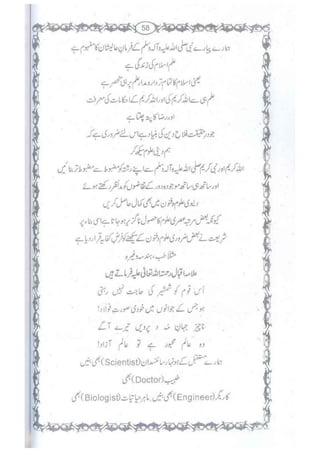 58
ہمارے پیارے نبی صلی اللہ علیہ وآلہ وسلم کے فرمان عالیشان کا مفہوم ہے
علم اسلام کی زندگی ہے
یعنی اسلام کا تمام تر دارومدار علم پر ہی منحصر ہے
علم ہی سے اللہ کریم کی اور اللہ کریم کے احکامات کی معرفت
اور رضا کا پتہ چلتا ہے
جو در حقیقت فلاح دین کی بنیاد ہے اس لئے ضروری ہے کہ
ہم دینی علوم سیکھ کر
اللہ کریم اور نبی کریم صلی اللہ علیہ وآلہ وسلم سے اپنے رشتہ کو مضبوط سے مضبوط تر بنائیں
اور ساتھ ہی ساتھ موجودہ دور کے تقاضوں کو مدنظر رکھتے ہوئے
دنیاوی علوم و فنون میں بھی کمال حاصل کریں
کیونکہ بعض مرتبہ عصری علوم کا حصول ناگزیر ہو جاتا ہے اسی بناء پر
شریعت نے بعض ضروری علوم و فنون کے سیکھنے کو فرض کفایہ قرار دیا ہے
مثلاً طب، ہندسہ وغیرہ
علامہ اقبال رحمۃ اللہ تعالیٰ علیہ فرماتے ہیں
اس قوم کو شمشیر کی حاجت نہیں رہتی
ہو جس کے جوانوں میں خودی صورت فولاد!
ناچیز جہان مہ و پرویں تیرے آگے
وہ عالم مجبور ہے تو عالم آزاد!
ہمارے مستقبل کے ہونہار سائنسدان (Scientist) بھی بنیں
طبیب (Doctor) بھی
کاریگر (Engineer) بھی بنیں، ماہر حیاتیات (Biologist) بھی